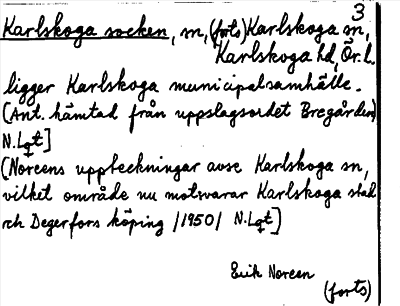 3
Karlskoga socken, sn, (forts) Karlskoga sn,
Karlskoga hd, Ör. l.
ligger Karlskoga municipalsamhälle.
(Ant. hämtad från uppslagsordet Bregården)
N. Lgt]
(Noreens uppteckningar avse Karlskoga sn,
vilket område nu motsvarar Karlskoga stad
och Degerfors köping /1950/ N. Lgt]
Erik Noreen
(forts)